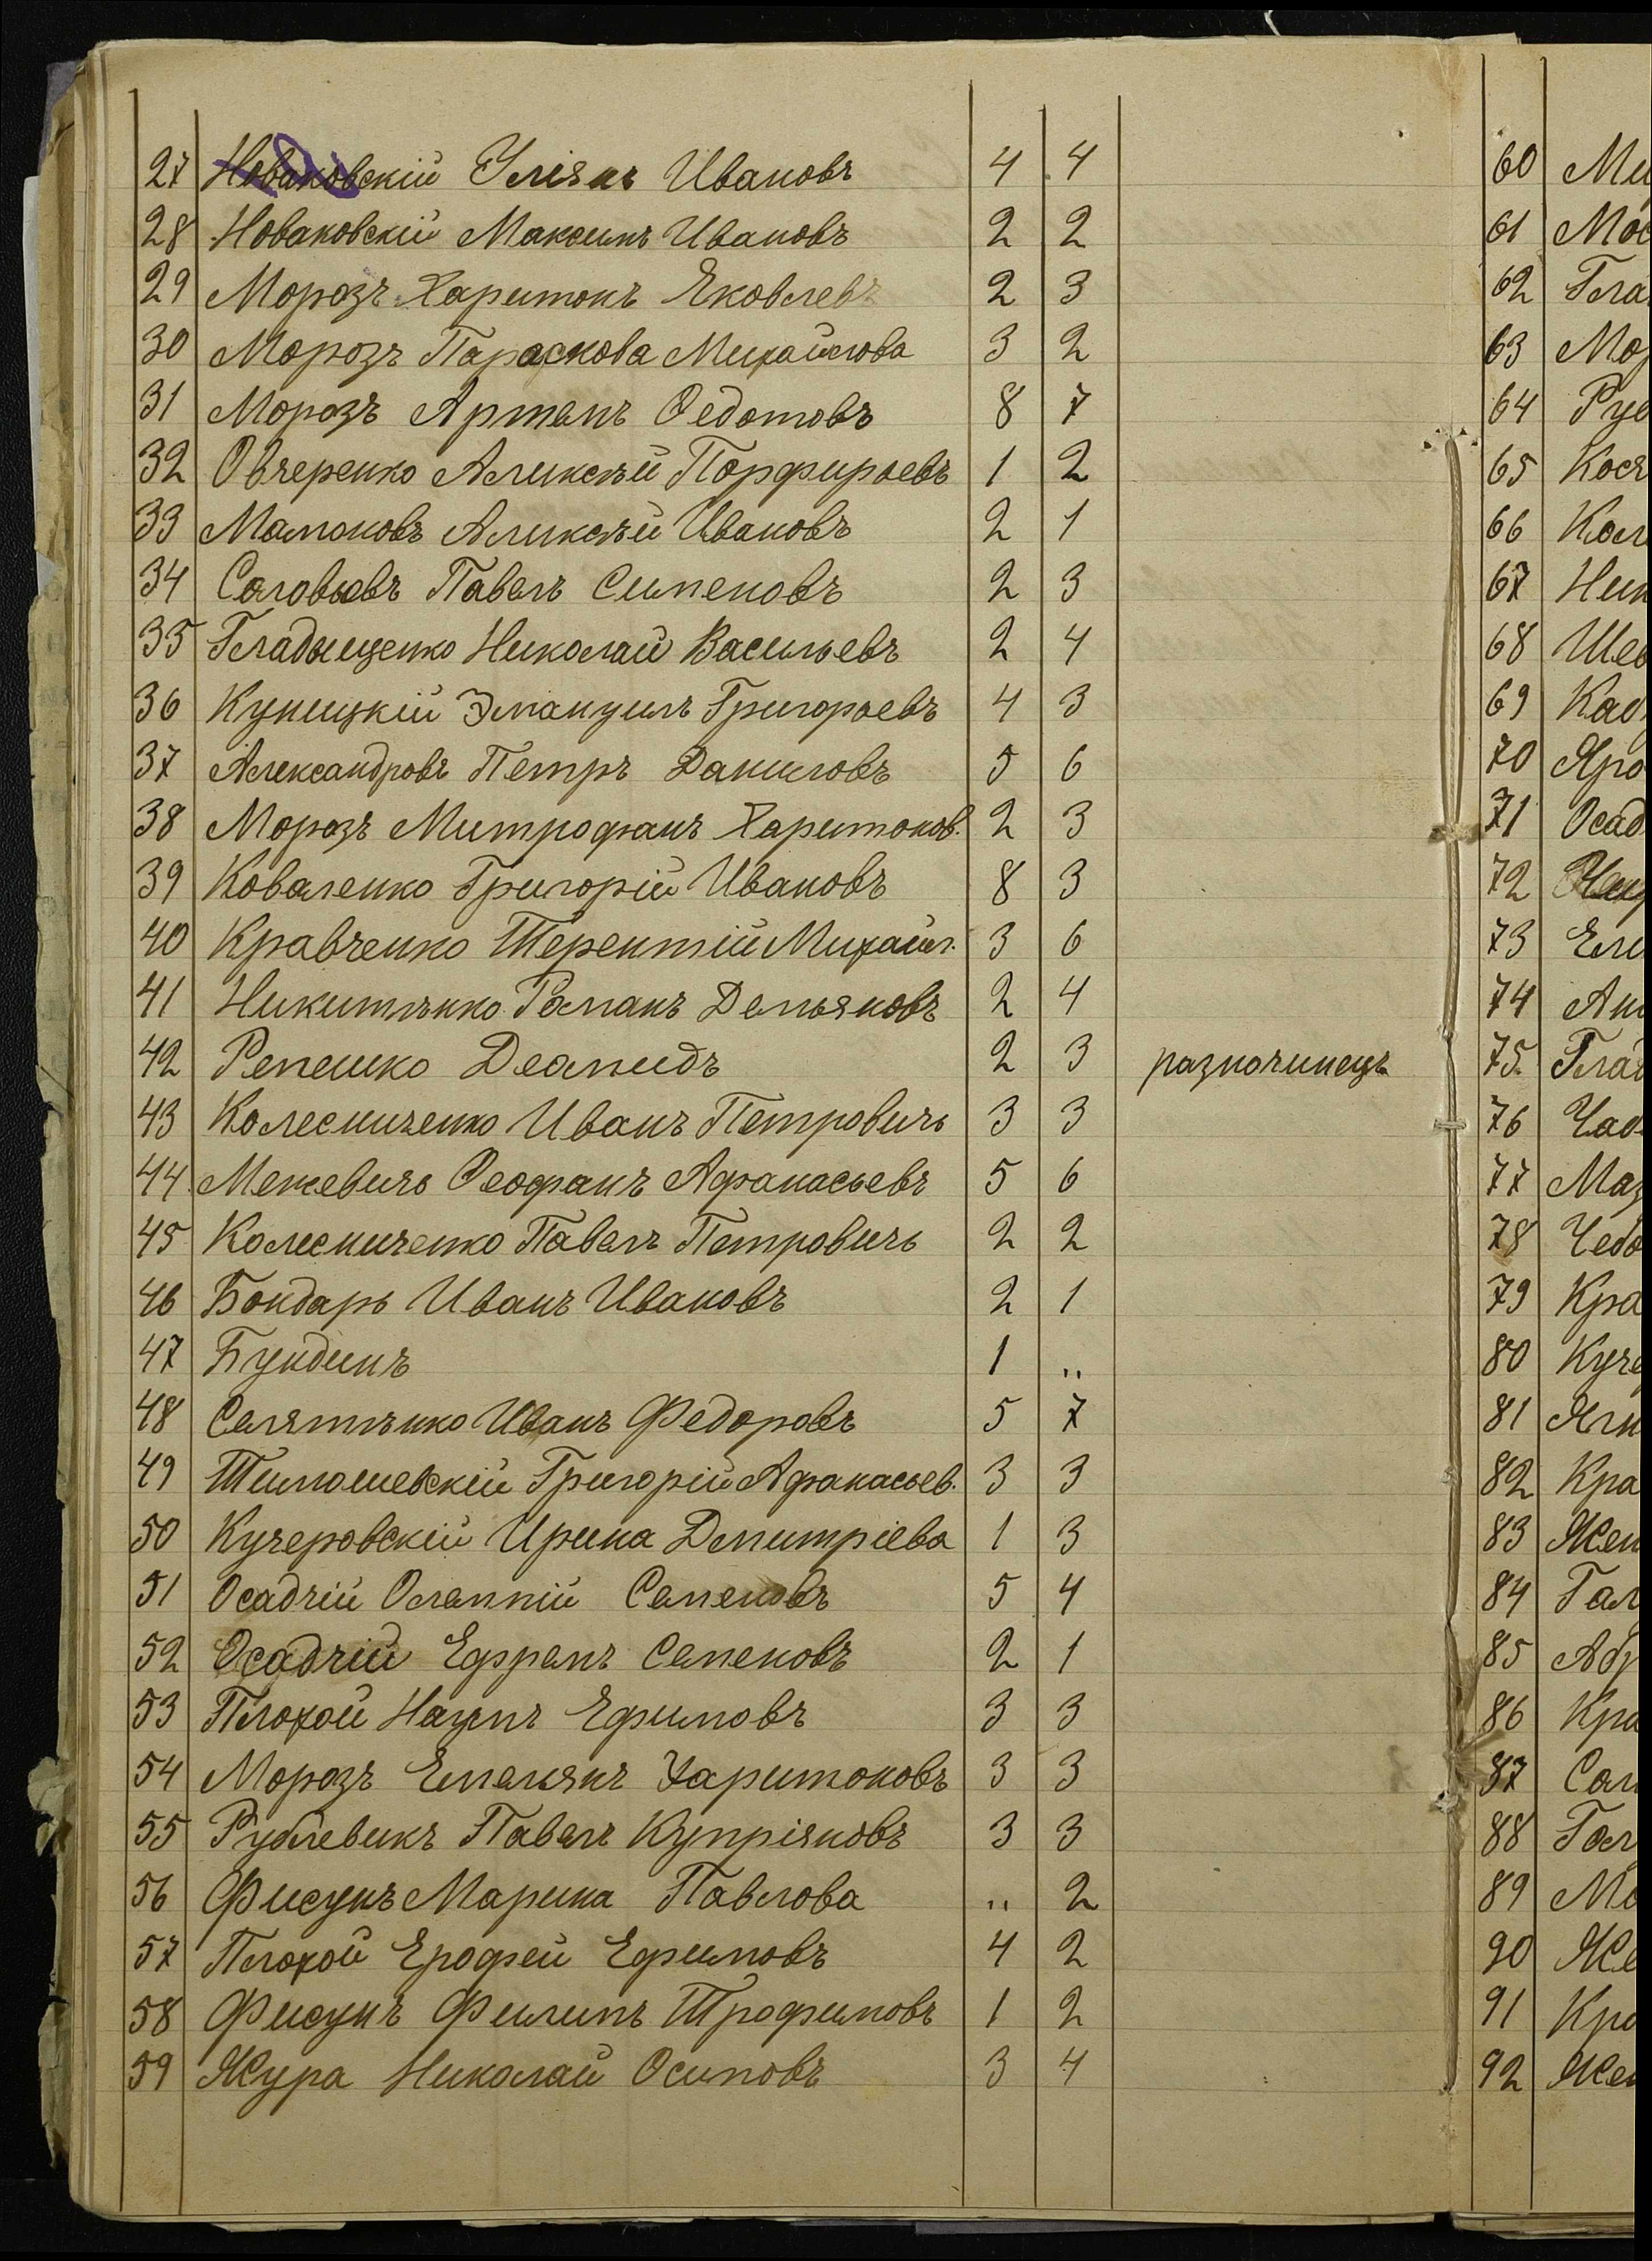 27 Новаковскій Уліянъ Ивановъ 4 4
28 Новаковскій Максимъ Ивановъ 2 2
29 Морозъ Харитонъ Яковлевъ 2 3
30 Морозъ Параскова Михайлова 3 2
31 Морозъ Артемъ Ѳедотовъ 8 7
32 Овчеренко Аликсѣй Порфирьевъ 1 2
33 Мамоновъ Аликсѣй Ивановъ 2 1
34 Соловьевъ Павелъ Сименовъ 2 3
35 Гладыщенко Николай Васильевъ 2 4
36 Куницкій Эмануилъ Григорьевъ 4 3
37 Александровъ Петръ Даниловъ 5 6
38 Морозъ Митрофанъ Харитонов. 2 3
39 Коваленко Григорій Ивановъ 8 3
40 Кравченко Терентій Михайл. 3 6
41 Никитѣнко Романъ Демьяновъ 2 4
42 Репешко Деомидъ 2 3 разночинецъ
43 Колесниченко Иванъ Петровичъ 3 3
44 Межевичь Ѳеофанъ Афанасьевъ 5 6
45 Колесниченко Павелъ Петровичь 2 2
46 Бондарь Иванъ Ивановъ 2 1
47 Бундинъ 1 ..
48 Селятѣнко Иванъ Федоровъ 5 7
49 Тимошевскій Григорій Афанасьев. 3 3
50 Кучеровскій Ирина Дмитріева 1 3
51 Осадчій Олампій Семеновъ 5 4
52 Осадчій Ефремъ Семеновъ 2 1
53 Плохой Наумъ Ефимовъ 3 3
54 Морозъ Емельянъ Харитоновъ 3 3
55 Рублевикъ Павелъ Купріяновъ 3 3
56 Фисунъ Марина Павлова .. 2
57 Плохой Ерофей Ефимовъ 4 2
58 Фисунъ Филипъ Трофимовъ 1 2
59 Жура Николай Осиповъ 3 4
60
61
62
63
64
65
66
67
68
69
70
71
72
73
74
75
76
77
78
79
80
81
82
83
84
85
86
87
88
89
90
91
92